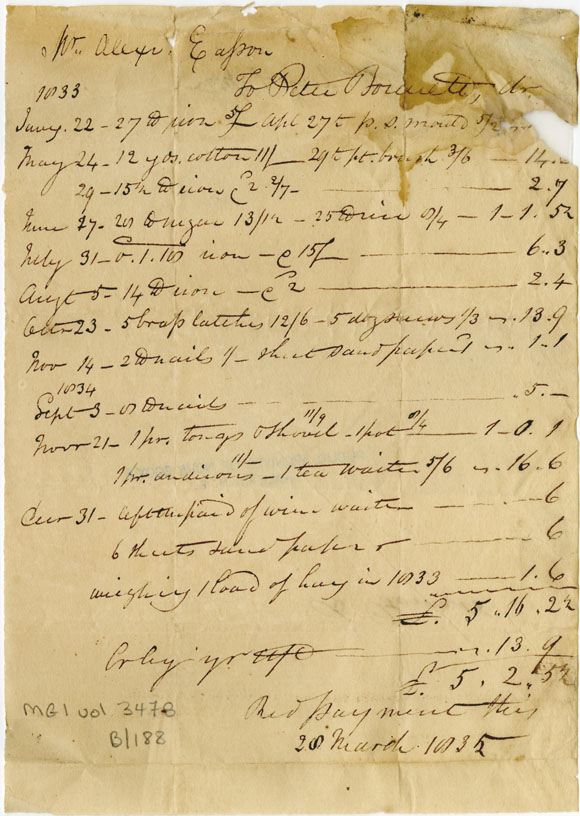 Mr. Alexr. Easson
1833 To Peter Bonnett, dr
Jany. 22 - 27 lb iron 5/ Apl 27th p. s. mould 5/2
May 24 - 12 yds. cotton 11/ 29th pt. brush 3/6 — 14.
29 - 15½ lb iron @ 2 2/7 — 2.7
June 27 - 20 lb sugar 13/1½ - 25 lb rice 8/4 — 1 - 1. 5½
July 31 - 0. 1. 10 iron - @ 15/ — 6.3
Augt 5 - 14 lb iron - @ 2 — 2.4
Octr 23 - 5 brass latches 12/6 - 5 doz screws 1/3 ". 13. 9
Nov 14 - 2 lb nails 1/ - sheet sand paper 1 ". 1. 1
1834
Sept 3 - 8 lb nails — ". 5. —
Novr 21 - 1 pr. tongs & shovel 11/9 - 1 pot 8/4 — 1 - 0. 1
1 pr. andirons 11/- - 1 tea waiter 5/6 ". 16. 6
Decr 31 - left unpaid of wine waiter — 6
6 sheets sand paper — 6
weighing 1 load of hay in 1833 — 1. 6
£. 5 ". 16 . 2½
Cr by yr — ". 13. 9
£. 5 . 2 ". 5½
Recd payment this
28 March. 1835
MG1 vol. 3478
B/188